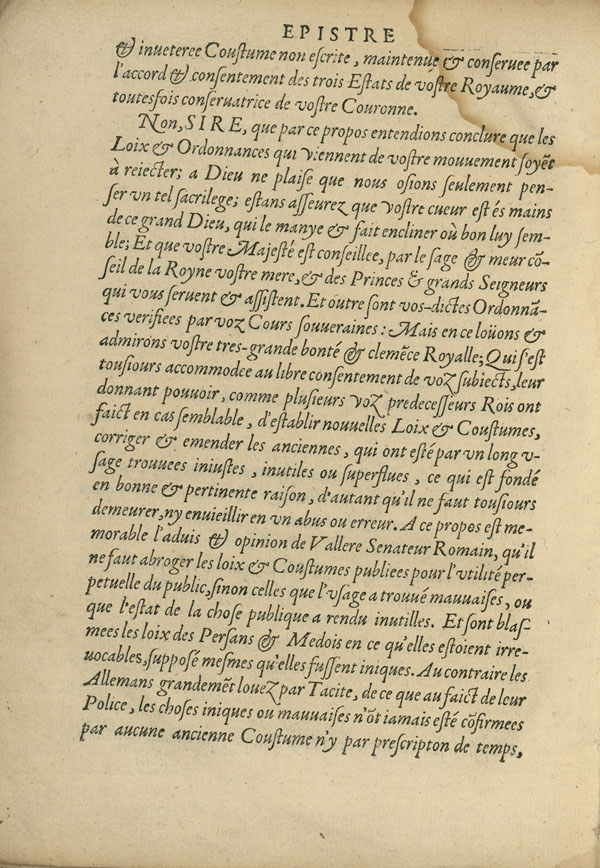 EPISTRE
& inueteree Coustume non escrite, maintenue & conseruee par
l'accord & consentement des trois Estats de vostre Royaume, &
toutesfois conseruatrice de vostre Couronne.
Non, SIRE, que par ce propos entendions conclure que les
Loix & Ordonnances qui viennent de vostre mouuement soyẽt
à reiecter; a Dieu ne plaise que nous osions seulement pen-
ser vn tel sacrilege; estans asseurez que vostre cueur est és mains
de ce grand Dieu, qui le manye & fait encliner où bon luy sem-
ble; Et que vostre Majesté est conseillee, par le sage & meur cõ-
seil de la Royne vostre mere, & des Princes & grands Seigneurs
qui vous seruent & assistent. Et outre sont vos-dictes Ordonnã-
ces verifiees par voz Cours souueraines: Mais en ce loüons &
admirons vostre tres-grande bonté & clemẽce Royalle; Qui s'est
tousiours accommodee au libre consentement de voz subiects, leur
donnant pouuoir, comme plusieurs voz predecesseurs Rois ont
faict en cas semblable, d'establir nouuelles Loix & Coustumes,
corriger & emender les anciennes, qui ont esté par vn long v-
sage trouuees iniustes, inutiles ou superflues, ce qui est fondé
en bonne & pertinente raison, d'autant qu'il ne faut tousiours
demeurer, ny enuieillir en vn abus ou erreur. A ce propos est me-
morable l'aduis & opinion de Vallere Senateur Romain, qu'il
ne faut abroger les loix & Coustumes publiees pour l'vtilité per-
petuelle du public, sinon celles que l'vsage a trouué mauuaises, ou
que l'estat de la chose publique a rendu inutilles. Et sont blas-
mees les loix des Persans & Medois en ce qu'elles estoient irre-
uocables, supposé mesmes qu'elles fussent iniques. Au contraire les
Allemans grandemẽt louez par Tacite, de ce que au faict de leur
Police, les choses iniques ou mauuaises n'õt iamais esté cõfirmees
par aucune ancienne Coustume n'y par prescripton de temps,